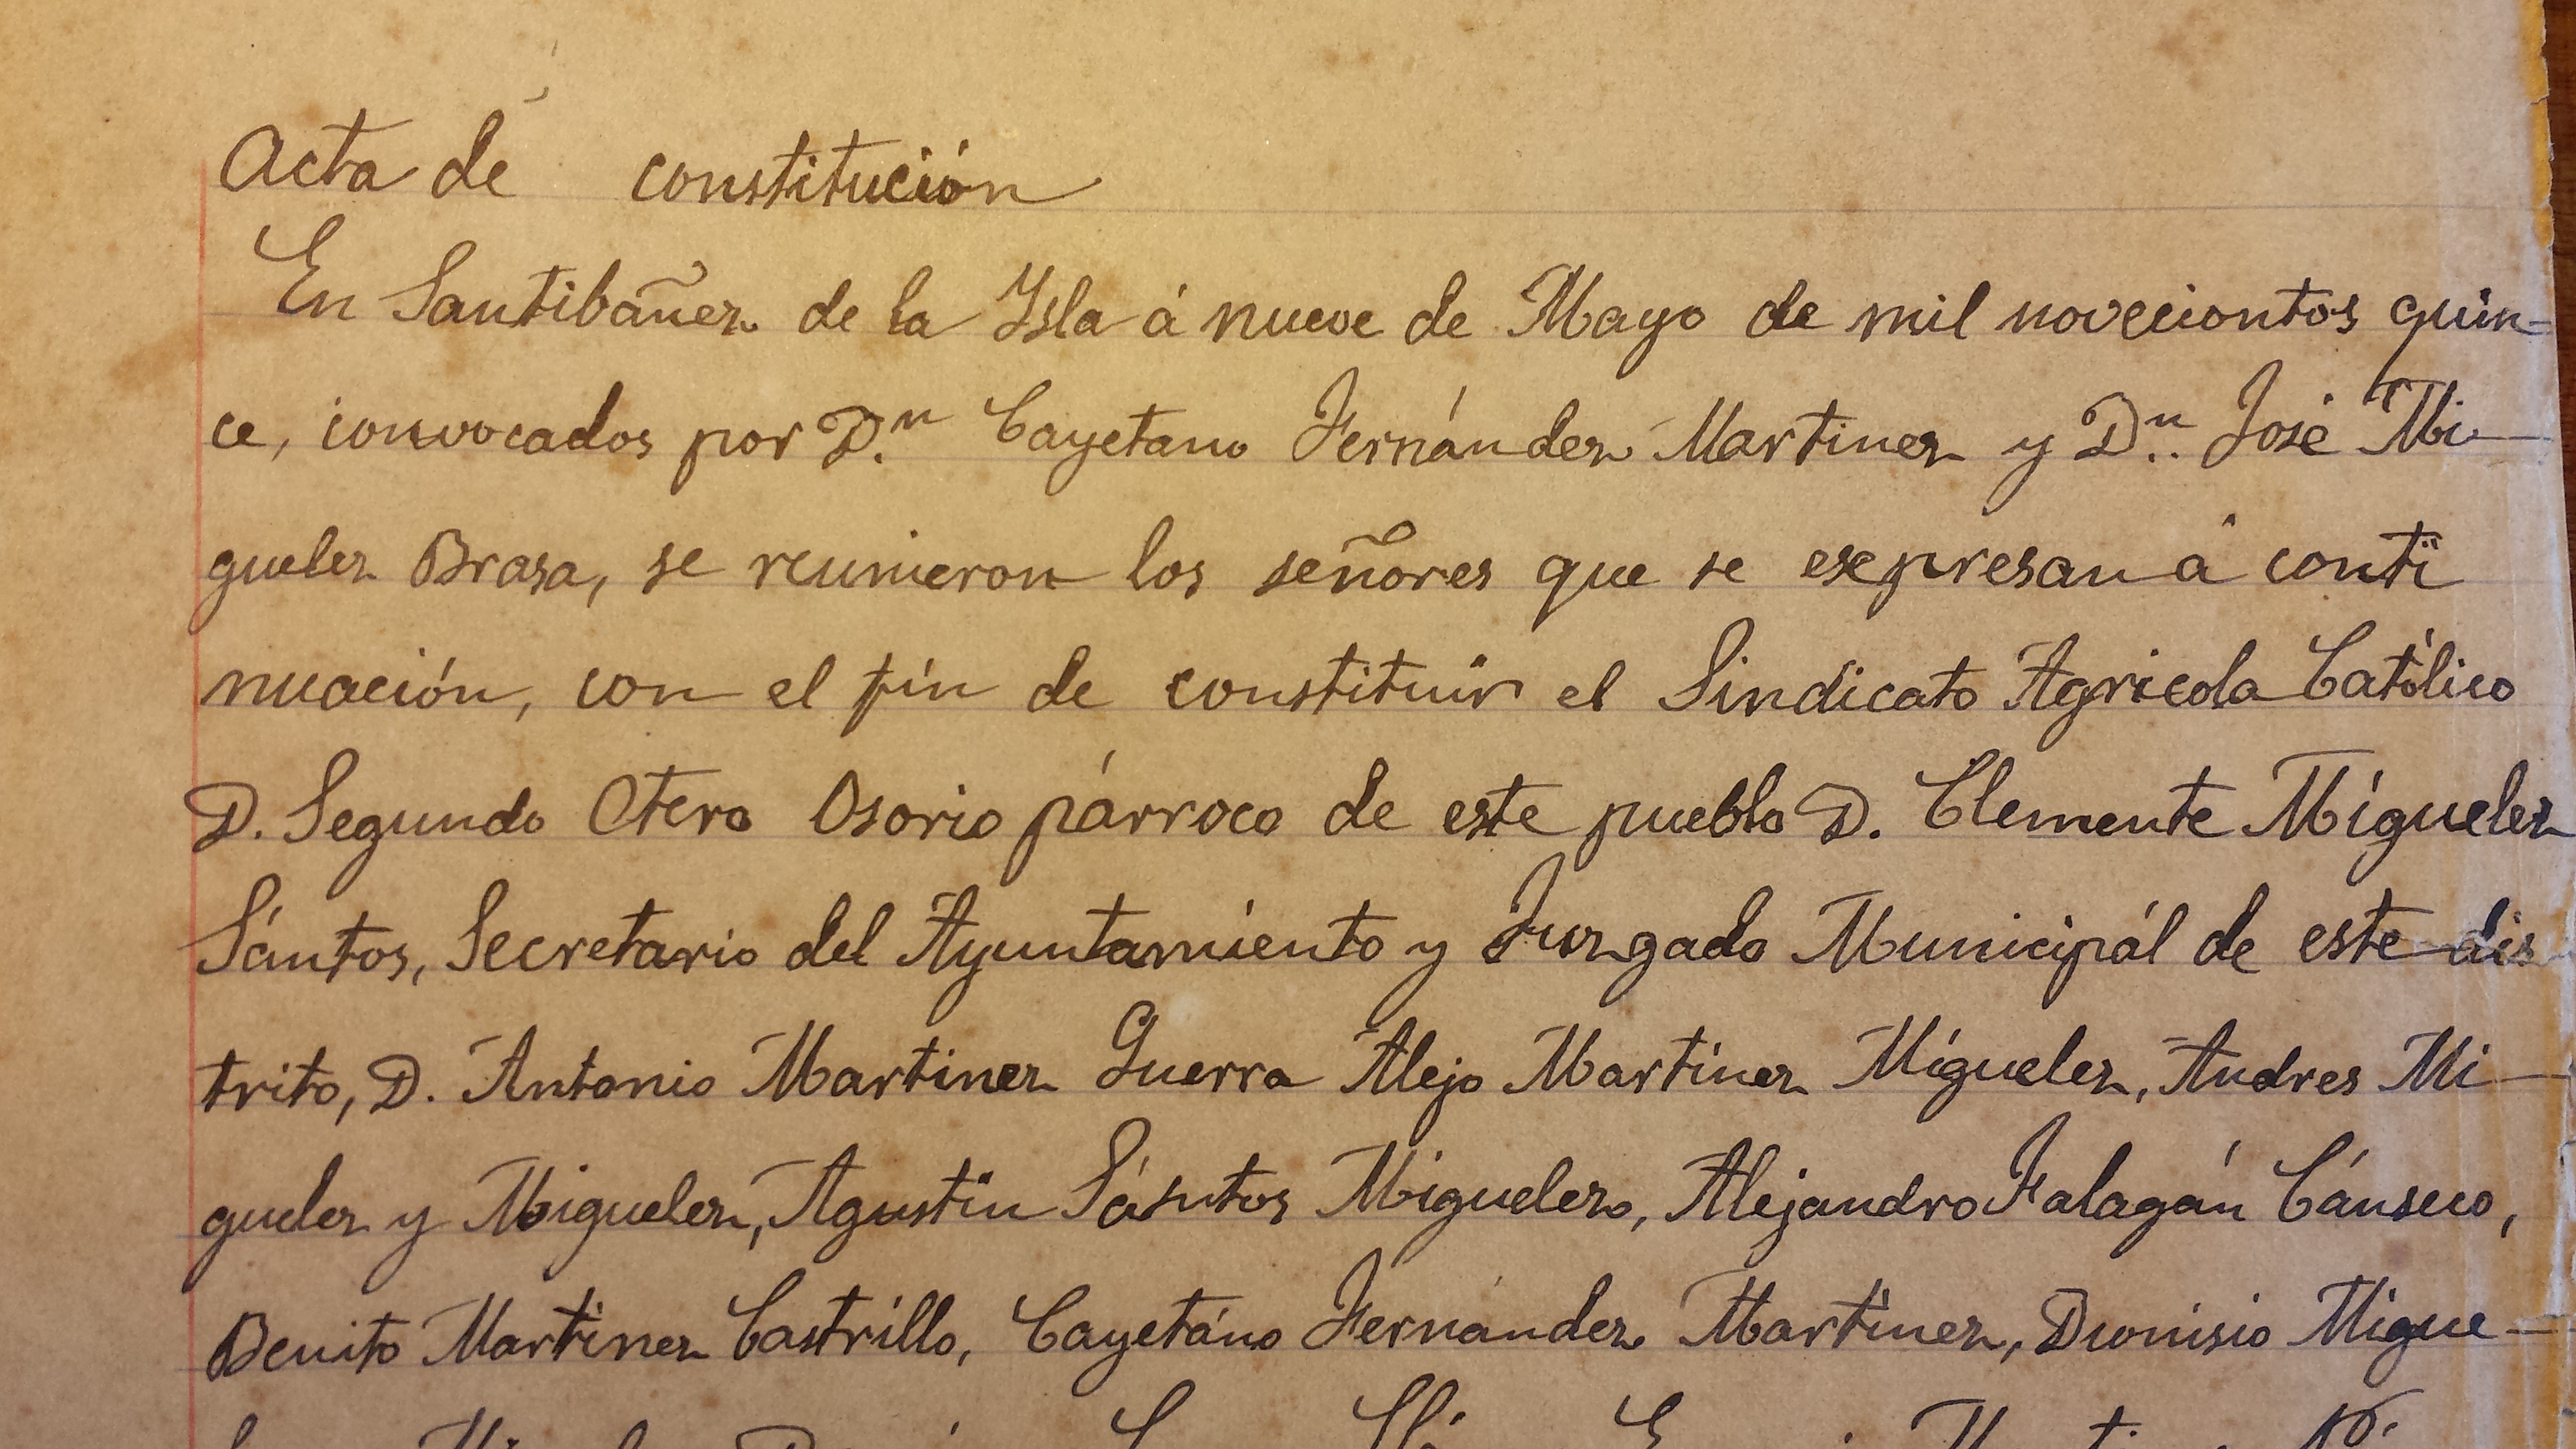 Acta de constitución
En Santibañez de la Isla á nueve de Mayo de mil noveciontos quin=
ce, convocados por D.n Cayetano Fernández Martinez y D.n José Mi-
guelez Brasa, se reunieron los señores que se expresan á conti
nuación, con el fín de constituir el Sindicato Agricola Católico
D. Segundo Otero Osorio párroco de este pueblo D. Clemente Míguelez
Sántos, Secretario del Ayuntamiento y Juzgado Municipál de este dis
trito, D. Antonio Martinez Guerra Alejo Martinez Míguelez, Andres Mi-
guelez y Miguelez, Agustin Sántos Miguelez, Alejandro Falagán Cánseco,
Benito Martinez Castrillo, Cayetáno Fernández Martinez, Dionisio Migue-